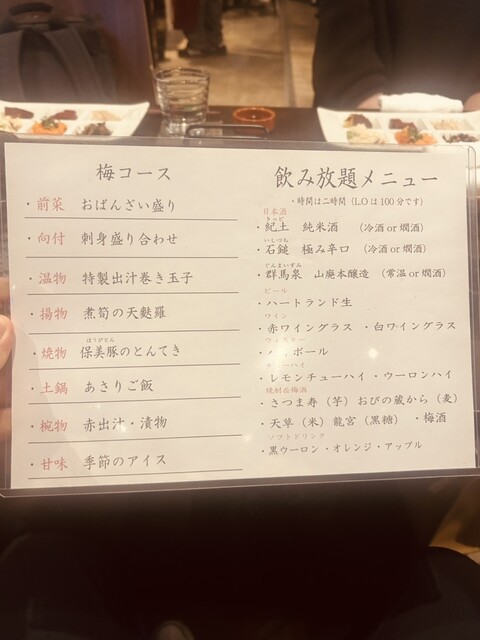 梅コース
・前菜 おばんざい盛り
・向付 刺身盛り合わせ
・温物 特製出汁巻き玉子
・揚物 煮筍の天麩羅
ほうびとん
・焼物 保美豚のとんてき
・土鍋 あさりご飯
・椀物 赤出汁・漬物
・甘味 季節のアイス
飲み放題メニュー
・時間は二時間（L.Oは100分です）
日本酒
きっど
・紀土 純米酒 （冷酒or燗酒）
いしづち
・石鎚 極み辛口 （冷酒or燗酒）
ぐんまいずみ
・群馬泉 山廃本醸造 （常温or燗酒）
ビール
・ハートランド生
ワイン
・赤ワイングラス ・白ワイングラス
ウィスキー
・ハイボール
チューハイ
・レモンチューハイ ・ウーロンハイ
焼酎&梅酒
・さつま寿（芋） おびの蔵から（麦）
・天草（米） 龍宮（黒糖） ・梅酒
ソフトドリンク
・黒ウーロン・オレンジ・アップル